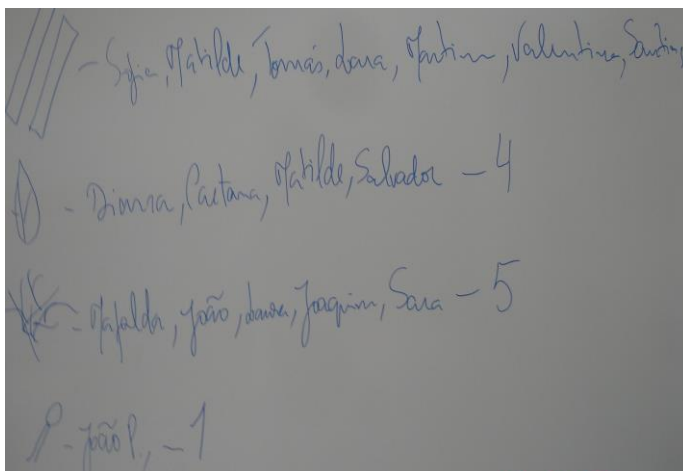 - Sofia, Matilde, Tomás, Lara, Martim, Valentina, Santin
- Dianna, Caetana, Matilde, Salvador - 4
- Mafalda, João, Laura, Joaquim, Sara - 5
- João P. - 1